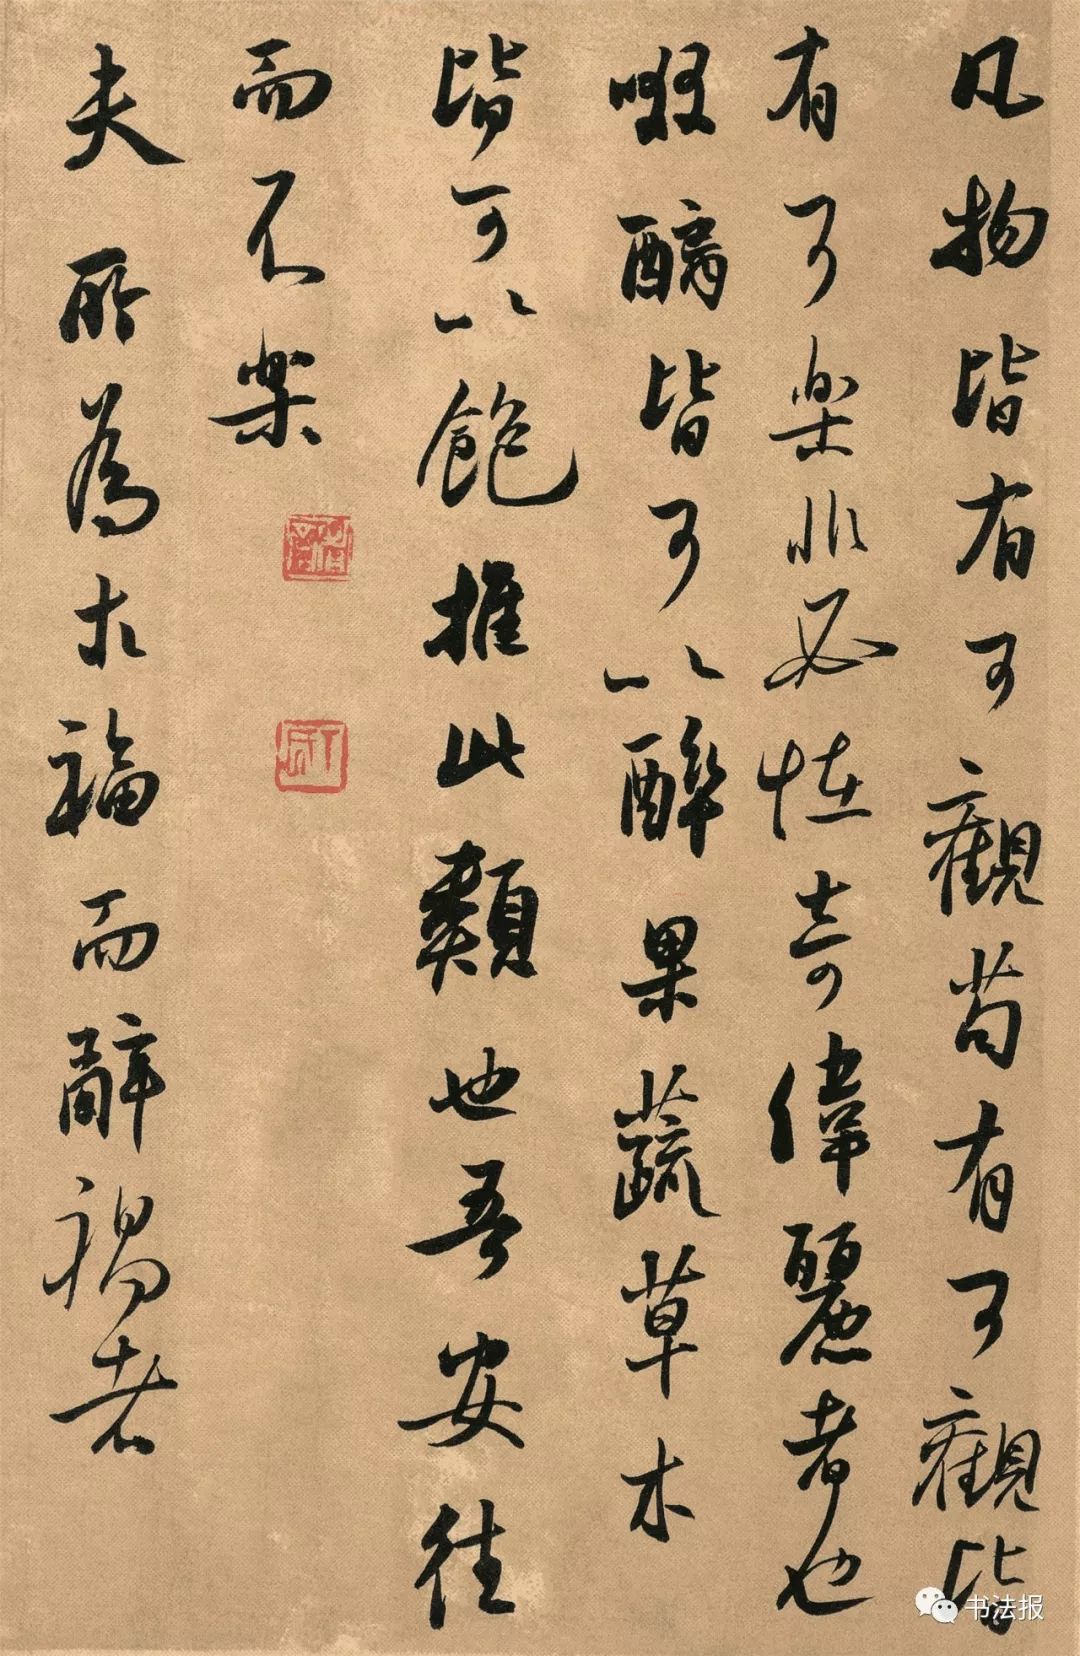 凡物皆有可觀苟有可觀皆
有可樂非必恠奇偉麗者也
啜醨皆可以醉果蔬草木
皆可以飽推此類也吾安往
而不樂
夫所為求福而辭禍者
书法报